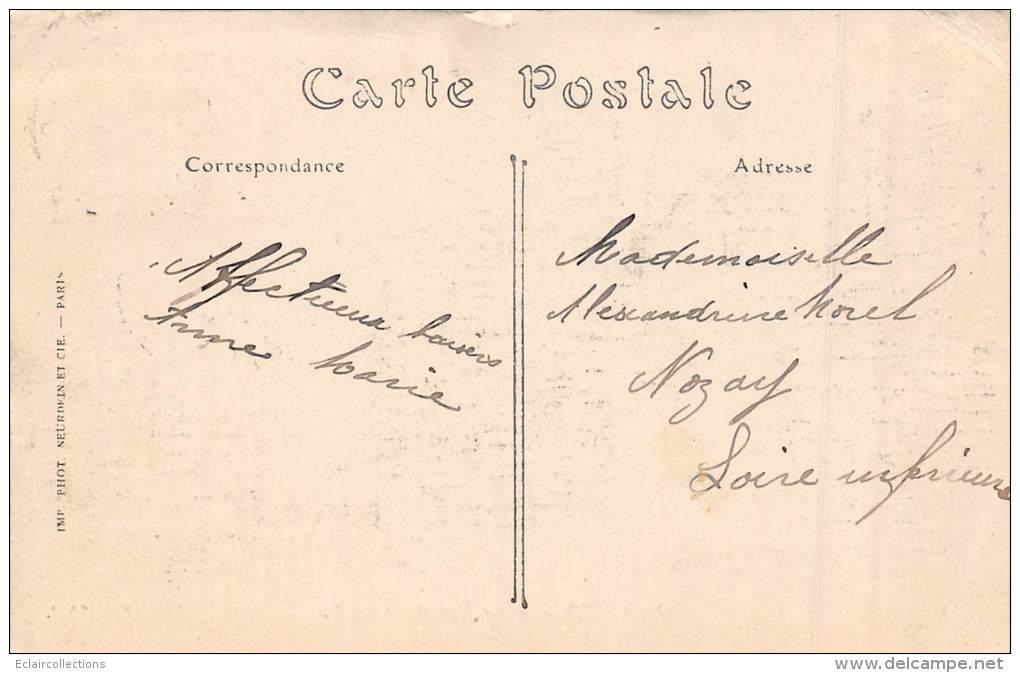 Carte Postale
Correspondance
Affectueux baisers
Anne Marie
Adresse
Mademoiselle
Alexandrine Morel
Nozay
Loire inférieure
IMP. PHOT. NEURDEIN ET CIE. — PARIS
Eclaircollections
www.delcampe.net